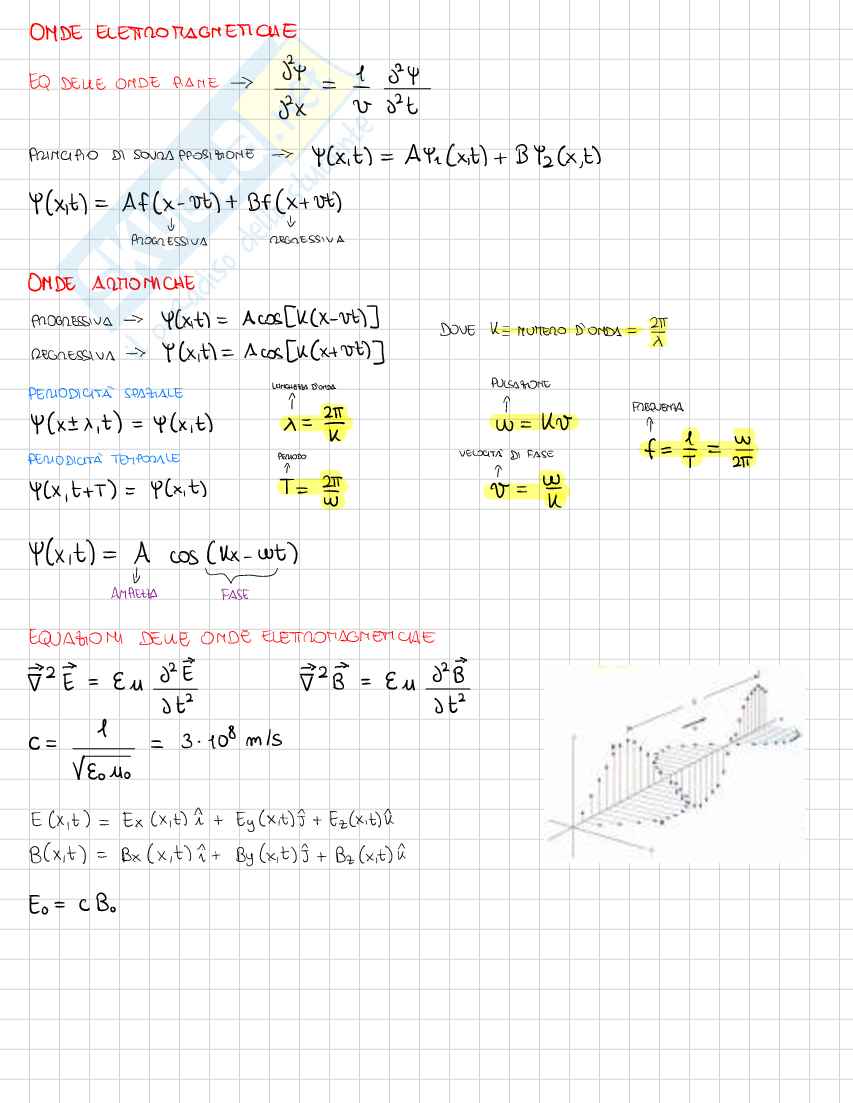 ONDE ELETTROMAGNETICHE
EQ DELLE ONDE PIANE → ∂²Ψ/∂²x = 1/v ∂²Ψ/∂²t
PRINCIPIO DI SOVRAPPOSIZIONE → Ψ(x,t) = AΨ₁(x,t) + BΨ₂(x,t)
Ψ(x,t) = Af(x-vt) + Bf(x+vt)
↓ PROGRESSIVA ↓ REGRESSIVA
ONDE ARMONICHE
PROGRESSIVA → Ψ(x,t) = A cos[K(x-vt)]
REGRESSIVA → Ψ(x,t) = A cos[K(x+vt)]
DOVE K ≡ NUMERO D'ONDA = 2π/λ
PERIODICITÀ SPAZIALE
Ψ(x±λ,t) = Ψ(x,t)
LUNGHEZZA D'ONDA
↑
λ = 2π/K
PULSAZIONE
↑
ω = Kv
FREQUENZA
↑
f = 1/T = ω/2π
PERIODICITÀ TEMPORALE
Ψ(x,t+T) = Ψ(x,t)
PERIODO
↑
T = 2π/ω
VELOCITÀ DI FASE
↑
v = ω/K
Ψ(x,t) = A cos(Kx-ωt)
↓ AMPIEZZA FASE
EQUAZIONI DELLE ONDE ELETTROMAGNETICHE
∇⃗²E⃗ = εμ ∂²E⃗/∂t² ∇⃗²B⃗ = εμ ∂²B⃗/∂t²
c = 1/√ε₀μ₀ = 3·10⁸ m/s
E(x,t) = Ex(x,t)î + Ey(x,t)ĵ + Ez(x,t)k̂
B(x,t) = Bx(x,t)î + By(x,t)ĵ + Bz(x,t)k̂
E₀ = cB₀